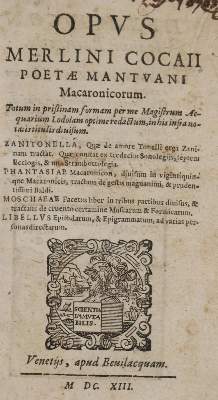 OPVS
MERLINI COCAII
POETÆ MANTVANI
Macaronicorum.
Totum in pristinam formam per me Magistrum Ac-
quarium Lodolam optime redactum, in his infra no-
tatis titulis diuisum.
ZANITONELLA, Quæ de amore Tonelli erga Zani-
nam tractat. Quæ constat ex tredecim Sonolegiis, septem
Ecclogis, & vna Strambottolegia.
PHANTASIAE Macaronicon, diuisum in vigintiquin-
que Macaronicis, tractans de gestis magnanimi, & pruden-
tissimi Baldi.
MOSCHAEAE Facetus liber in tribus partibus diuisus, &
tractans de cruento certamine Muscarum & Formicarum.
LIBELLVS Epistolarum, & Epigrammatum, ad varias per-
sonas directarum.
SCIENTIA
IMMVTA
BILIS.
Venetijs, apud Beuilacquam.
M DC. XIII.